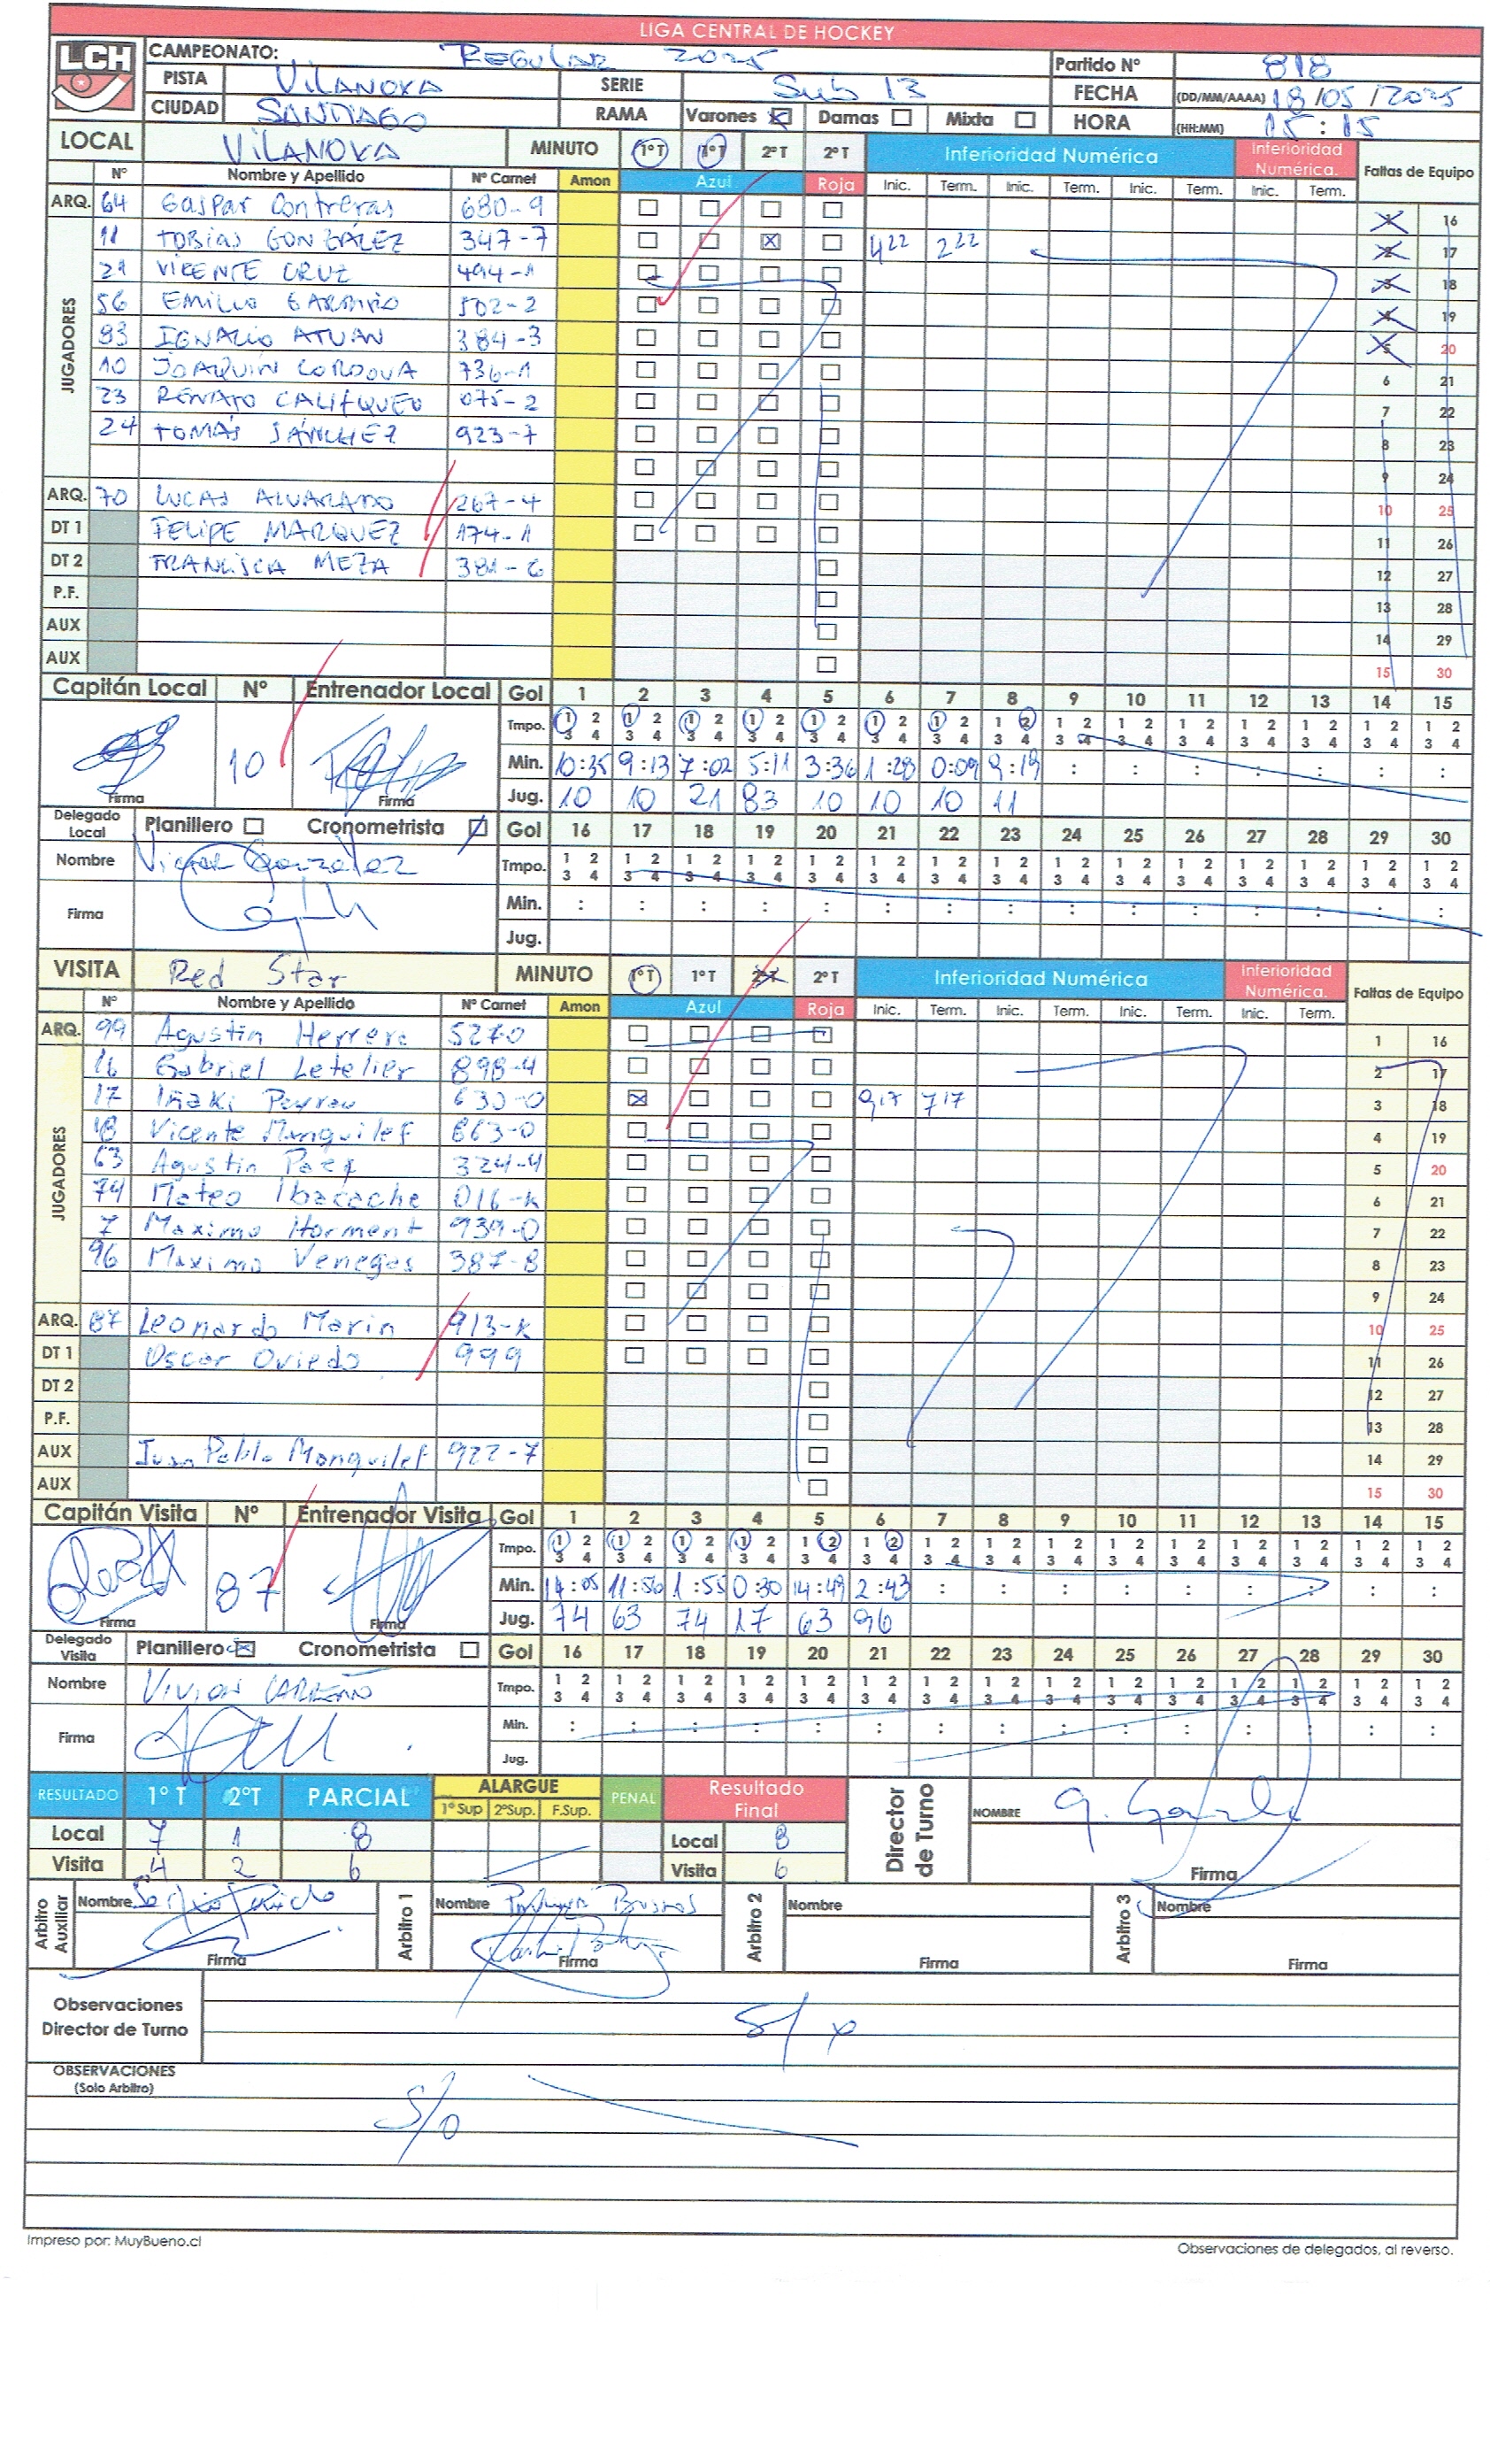 LIGA CENTRAL DE HOCKEY
LCH
CAMPEONATO: REGULAR 2025 Partido Nº 818
PISTA VILANOVA SERIE Sub 13 FECHA (DD/MM/AAAA) 18/05/2025
CIUDAD SANTIAGO RAMA Varones Damas Mixta HORA (HH:MM) 15:15
LOCAL VILANOVA MINUTO 1ºT 1ºT 2ºT 2ºT Inferioridad Numérica Inferioridad Numérica. Faltas de Equipo
Nº Nombre y Apellido Nº Carnet Amon Azul Roja Inic. Term. Inic. Term. Inic. Term. Inic. Term.
ARQ. 64 Gaspar Contreras 680-9 1 16
JUGADORES
11 TOBIAS GONZÁLEZ 347-7 422 222 2 17
21 VICENTE CRUZ 494-1 3 18
56 EMILIO GARRIDO 502-2 4 19
83 IGNACIO ATUAN 384-3 5 20
10 JOAQUÍN CORDOVA 736-1 6 21
23 RENATO CALIFQUEO 075-2 7 22
24 TOMÁS SÁNCHEZ 923-7 8 23
9 24
ARQ. 70 LUCAS ALVARADO 267-4 10 25
DT 1 FELIPE MARQUEZ 174-1 11 26
DT 2 FRANCISCA MEZA 381-6 12 27
P.F. 13 28
AUX 14 29
AUX 15 30
Capitán Local Nº Entrenador Local Gol 1 2 3 4 5 6 7 8 9 10 11 12 13 14 15
Tmpo. 1 2 3 4 1 2 3 4 1 2 3 4 1 2 3 4 1 2 3 4 1 2 3 4 1 2 3 4 1 2 3 4 1 2 3 4 1 2 3 4 1 2 3 4 1 2 3 4 1 2 3 4 1 2 3 4 1 2 3 4
10 Min. 10:35 9:13 7:02 5:11 3:36 1:28 0:09 9:19 : : : : : : :
Firma Firma Jug. 10 10 21 83 10 10 10 11
Delegado Local Planillero Cronometrista Gol 16 17 18 19 20 21 22 23 24 25 26 27 28 29 30
Nombre Victor Gonzalez Tmpo. 1 2 3 4 1 2 3 4 1 2 3 4 1 2 3 4 1 2 3 4 1 2 3 4 1 2 3 4 1 2 3 4 1 2 3 4 1 2 3 4 1 2 3 4 1 2 3 4 1 2 3 4 1 2 3 4 1 2 3 4
Firma Min. : : : : : : : : : : : : : : :
Jug.
VISITA Red Star MINUTO 1ºT 1ºT 2ºT 2ºT Inferioridad Numérica Inferioridad Numérica. Faltas de Equipo
Nº Nombre y Apellido Nº Carnet Amon Azul Roja Inic. Term. Inic. Term. Inic. Term. Inic. Term.
ARQ. 99 Agustin Herrera 527-0 1 16
JUGADORES
16 Gabriel Letelier 898-4 2 17
17 Iñaki 630-0 917 717 3 18
18 Vicente Manquilef 863-0 4 19
63 Agustin Paez 324-4 5 20
74 Mateo Ibacache 016-K 6 21
7 Maximo Horment 939-0 7 22
96 Maximo Venegas 387-8 8 23
9 24
ARQ. 87 Leonardo Marin 913-K 10 25
DT 1 Oscar Oviedo 999 11 26
DT 2 12 27
P.F. 13 28
AUX Juan Pablo Manquilef 922-7 14 29
AUX 15 30
Capitán Visita Nº Entrenador Visita Gol 1 2 3 4 5 6 7 8 9 10 11 12 13 14 15
Tmpo. 1 2 3 4 1 2 3 4 1 2 3 4 1 2 3 4 1 2 3 4 1 2 3 4 1 2 3 4 1 2 3 4 1 2 3 4 1 2 3 4 1 2 3 4 1 2 3 4 1 2 3 4 1 2 3 4 1 2 3 4
87 Min. 14:05 11:56 1:55 0:30 14:49 2:43 : : : : : : : : :
Firma Firma Jug. 74 63 74 17 63 96
Delegado Visita Planillero Cronometrista Gol 16 17 18 19 20 21 22 23 24 25 26 27 28 29 30
Nombre Vivian Carreño Tmpo. 1 2 3 4 1 2 3 4 1 2 3 4 1 2 3 4 1 2 3 4 1 2 3 4 1 2 3 4 1 2 3 4 1 2 3 4 1 2 3 4 1 2 3 4 1 2 3 4 1 2 3 4 1 2 3 4 1 2 3 4
Firma Min. : : : : : : : : : : : : : : :
Jug.
RESULTADO 1º T 2ºT PARCIAL ALARGUE 1º Sup 2ºSup. F.Sup. PENAL Resultado Final Director de Turno NOMBRE
Local 7 1 8 Local 8
Visita 4 2 6 Visita 6 Firma
Arbitro Auxiliar Nombre Sergio Arbitro 1 Nombre Arbitro 2 Nombre Arbitro 3 Nombre
Firma Firma Firma Firma
Observaciones
Director de Turno
OBSERVACIONES
(Solo Arbitro)
S/O
Impreso por: MuyBueno.cl
Observaciones de delegados, al reverso.